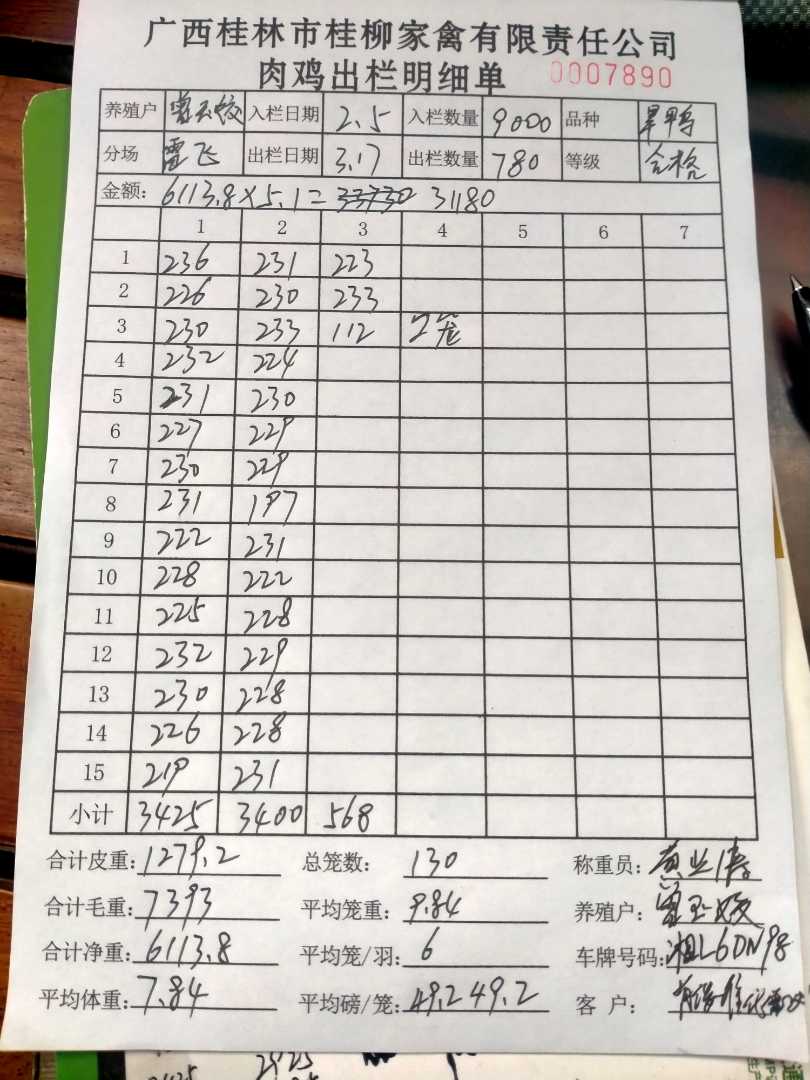 广西桂林市桂柳家禽有限责任公司
肉鸡出栏明细单 0007890
养殖户 曾玉姣 入栏日期 2.5 入栏数量 9000 品种 旱鸭
分场 雷飞 出栏日期 3.17 出栏数量 780 等级 合格
金额: 6113.8×5.1= 33730 31180
1 2 3 4 5 6 7
1 236 231 223
2 226 230 233
3 230 233 112 2笼
4 232 224
5 231 230
6 227 229
7 230 229
8 231 197
9 222 231
10 228 222
11 225 228
12 232 229
13 230 228
14 226 228
15 219 231
小计 3425 3400 568
合计皮重: 1279.2 总笼数: 130 称重员: 黄业涛
合计毛重: 7393 平均笼重: 9.84 养殖户: 曾玉姣
合计净重: 6113.8 平均笼/羽: 6 车牌号码: 湘L6DN98
平均体重: 7.84 平均磅/笼: 49.2 49.2 客户: